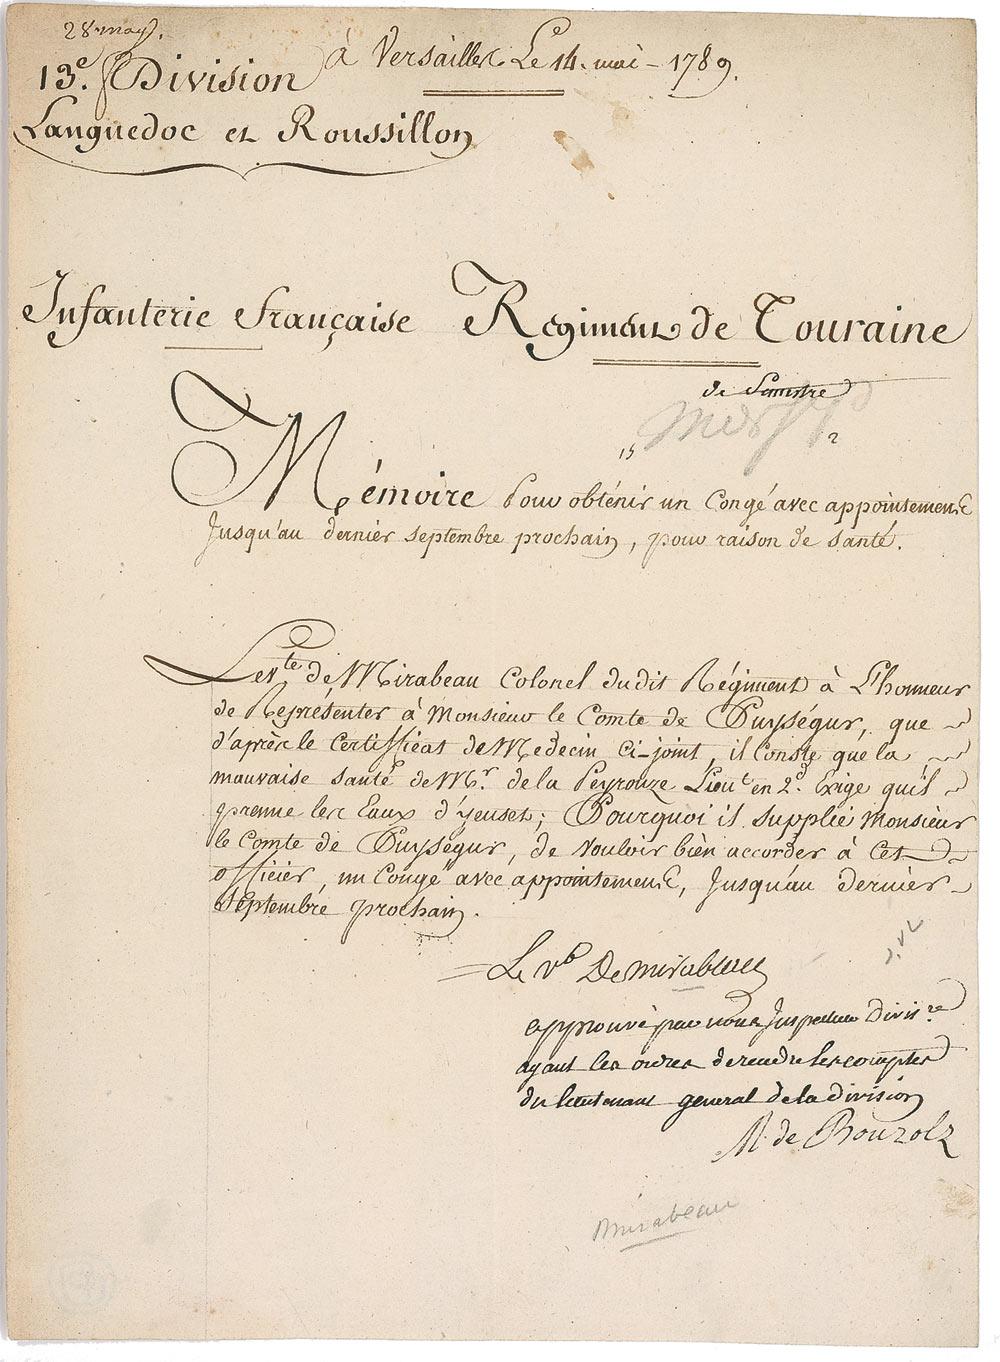 28 may.
à Versailles Le 14. mai - 1789.
13e. Division
Languedoc et Roussillon
Infanterie française Regiment de Touraine
de Semestre
15 2
Mémoire Pour obténir un Congé avec appointements
Jusqu'au dernier septembre prochain, pour raison de santé.
Le vte de Mirabeau Colonel du dit Régiment à L'honneur
de Représenter à Monsieur le Comte de Puységur, que
d'après le certifficat de Medecin ci-joint, il Conste que la
mauvaise santé de Mr. de la Peyrouze Lieut en 2d. Exige qu'il
prenne les Eaux d'yeuset; Pourquoi il supplie Monsieur
le Comte de Puységur, de vouloir bien accorder à Cet
officier, un Congé avec appointements, Jusqu'au dernier
Septembre prochain.
Le vte De mirabeau
approuvé par nous Inspecteur divisre
ayant les ordres de rendre les comptes
du lieutenant general de la division
M. de Bouzolz
mirabeau